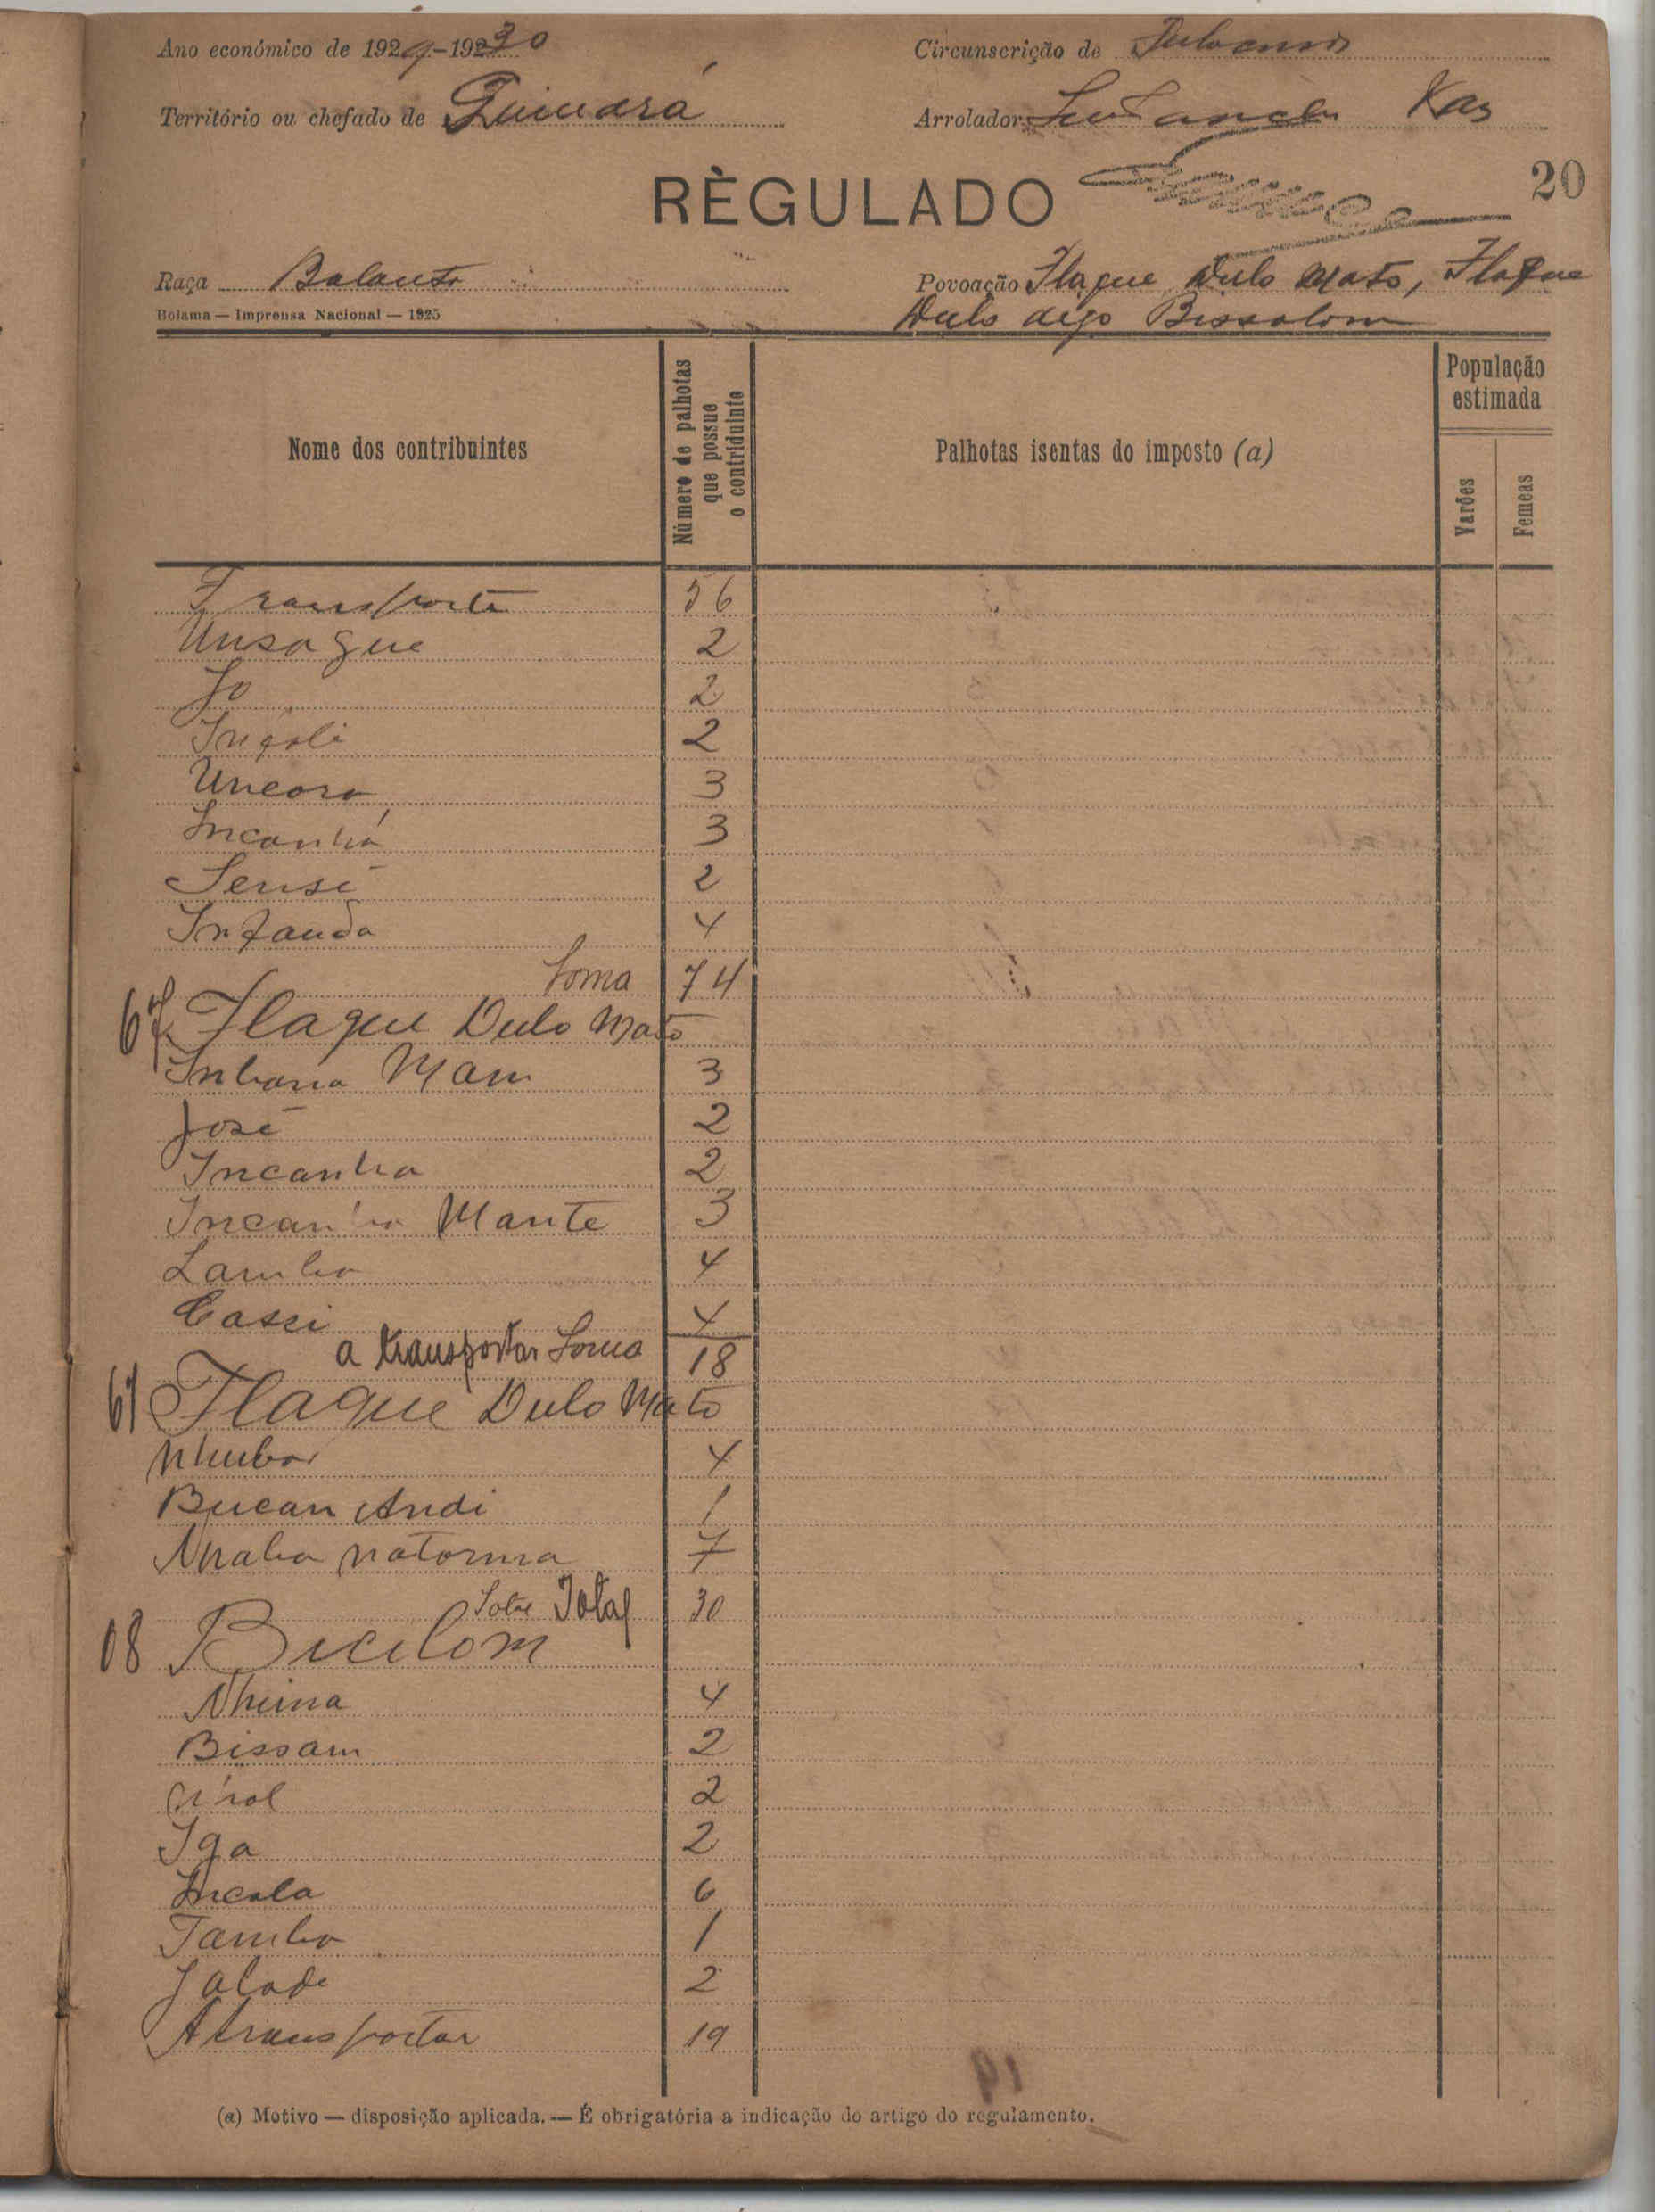 Ano económico de 1929-1930
Circunscrição de
Território ou chefado de Quinará
Arrolador
RÈGULADO
20
Raça Balanta
Povoação Flaque Dulo Mato, Flaque
Dulo digo Bissolom
Bolama — Imprensa Nacional — 1925
Nome dos contribuintes
Número de palhotas que possue o contriduinte
Palhotas isentas do imposto (a)
População estimada
Varões
Femeas
Transporte 56
Unsague 2
Jo 2
Ingoli 2
Uncora 3
Incanhá 3
Sensé 2
Infanda 4
Soma 74
67 Flaque Dulo Mato
Inbana Mam 3
José 2
Incanha 2
Incanha Mante 3
Lamba 4
Cassi 4
a transportar Soma 18
67 Flaque Dulo Mato
Nhuba 4
Bucan Andi 1
Naba natorna 7
Total 30
08 Bicilom
Nhina 4
Bissam 2
2
Iga 2
Incala 6
Tamba 1
Jalade 2
A transportar 19
19
(a) Motivo — disposição aplicada. — É obrigatória a indicação do artigo do regulamento.